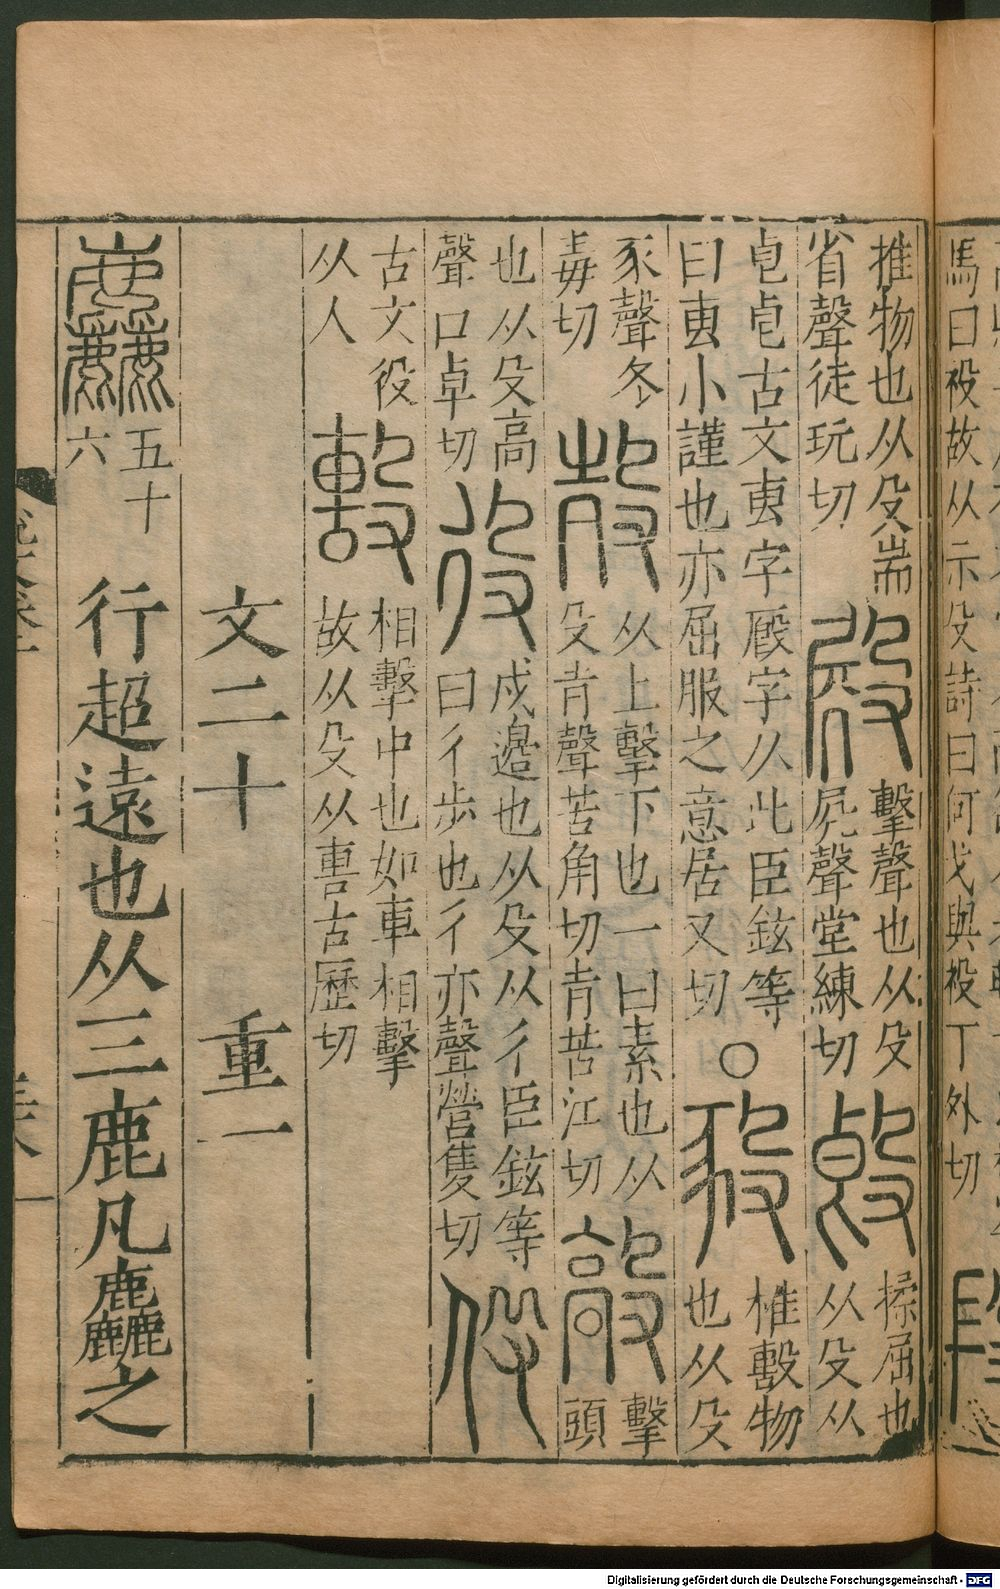 馬曰祋故从示殳詩曰何戈與祋丁外切
推物也从殳耑
省聲徒玩切
殿
擊聲也从殳
𡱂聲堂練切
𣪘
揉屈也
从殳从
皀皀古文叀字廄字从此臣鉉等
曰叀小謹也亦屈服之意居又切
○
豛
椎毄物
也从殳
豕聲冬
毒切
㱿
从上擊下也一曰素也从
殳青聲苦角切青苦江切
毃
擊
頭
也从殳高
聲口卓切
役
戍邊也从殳从彳臣鉉等
曰彳步也彳亦聲營隻切
伇
古文役
从人
毄
相擊中也如車相擊
故从殳从軎古歷切
文二十 重一
麤
五十
六
行超遠也从三鹿凡麤之
Digitalisierung gefördert durch die Deutsche Forschungsgemeinschaft - DFG